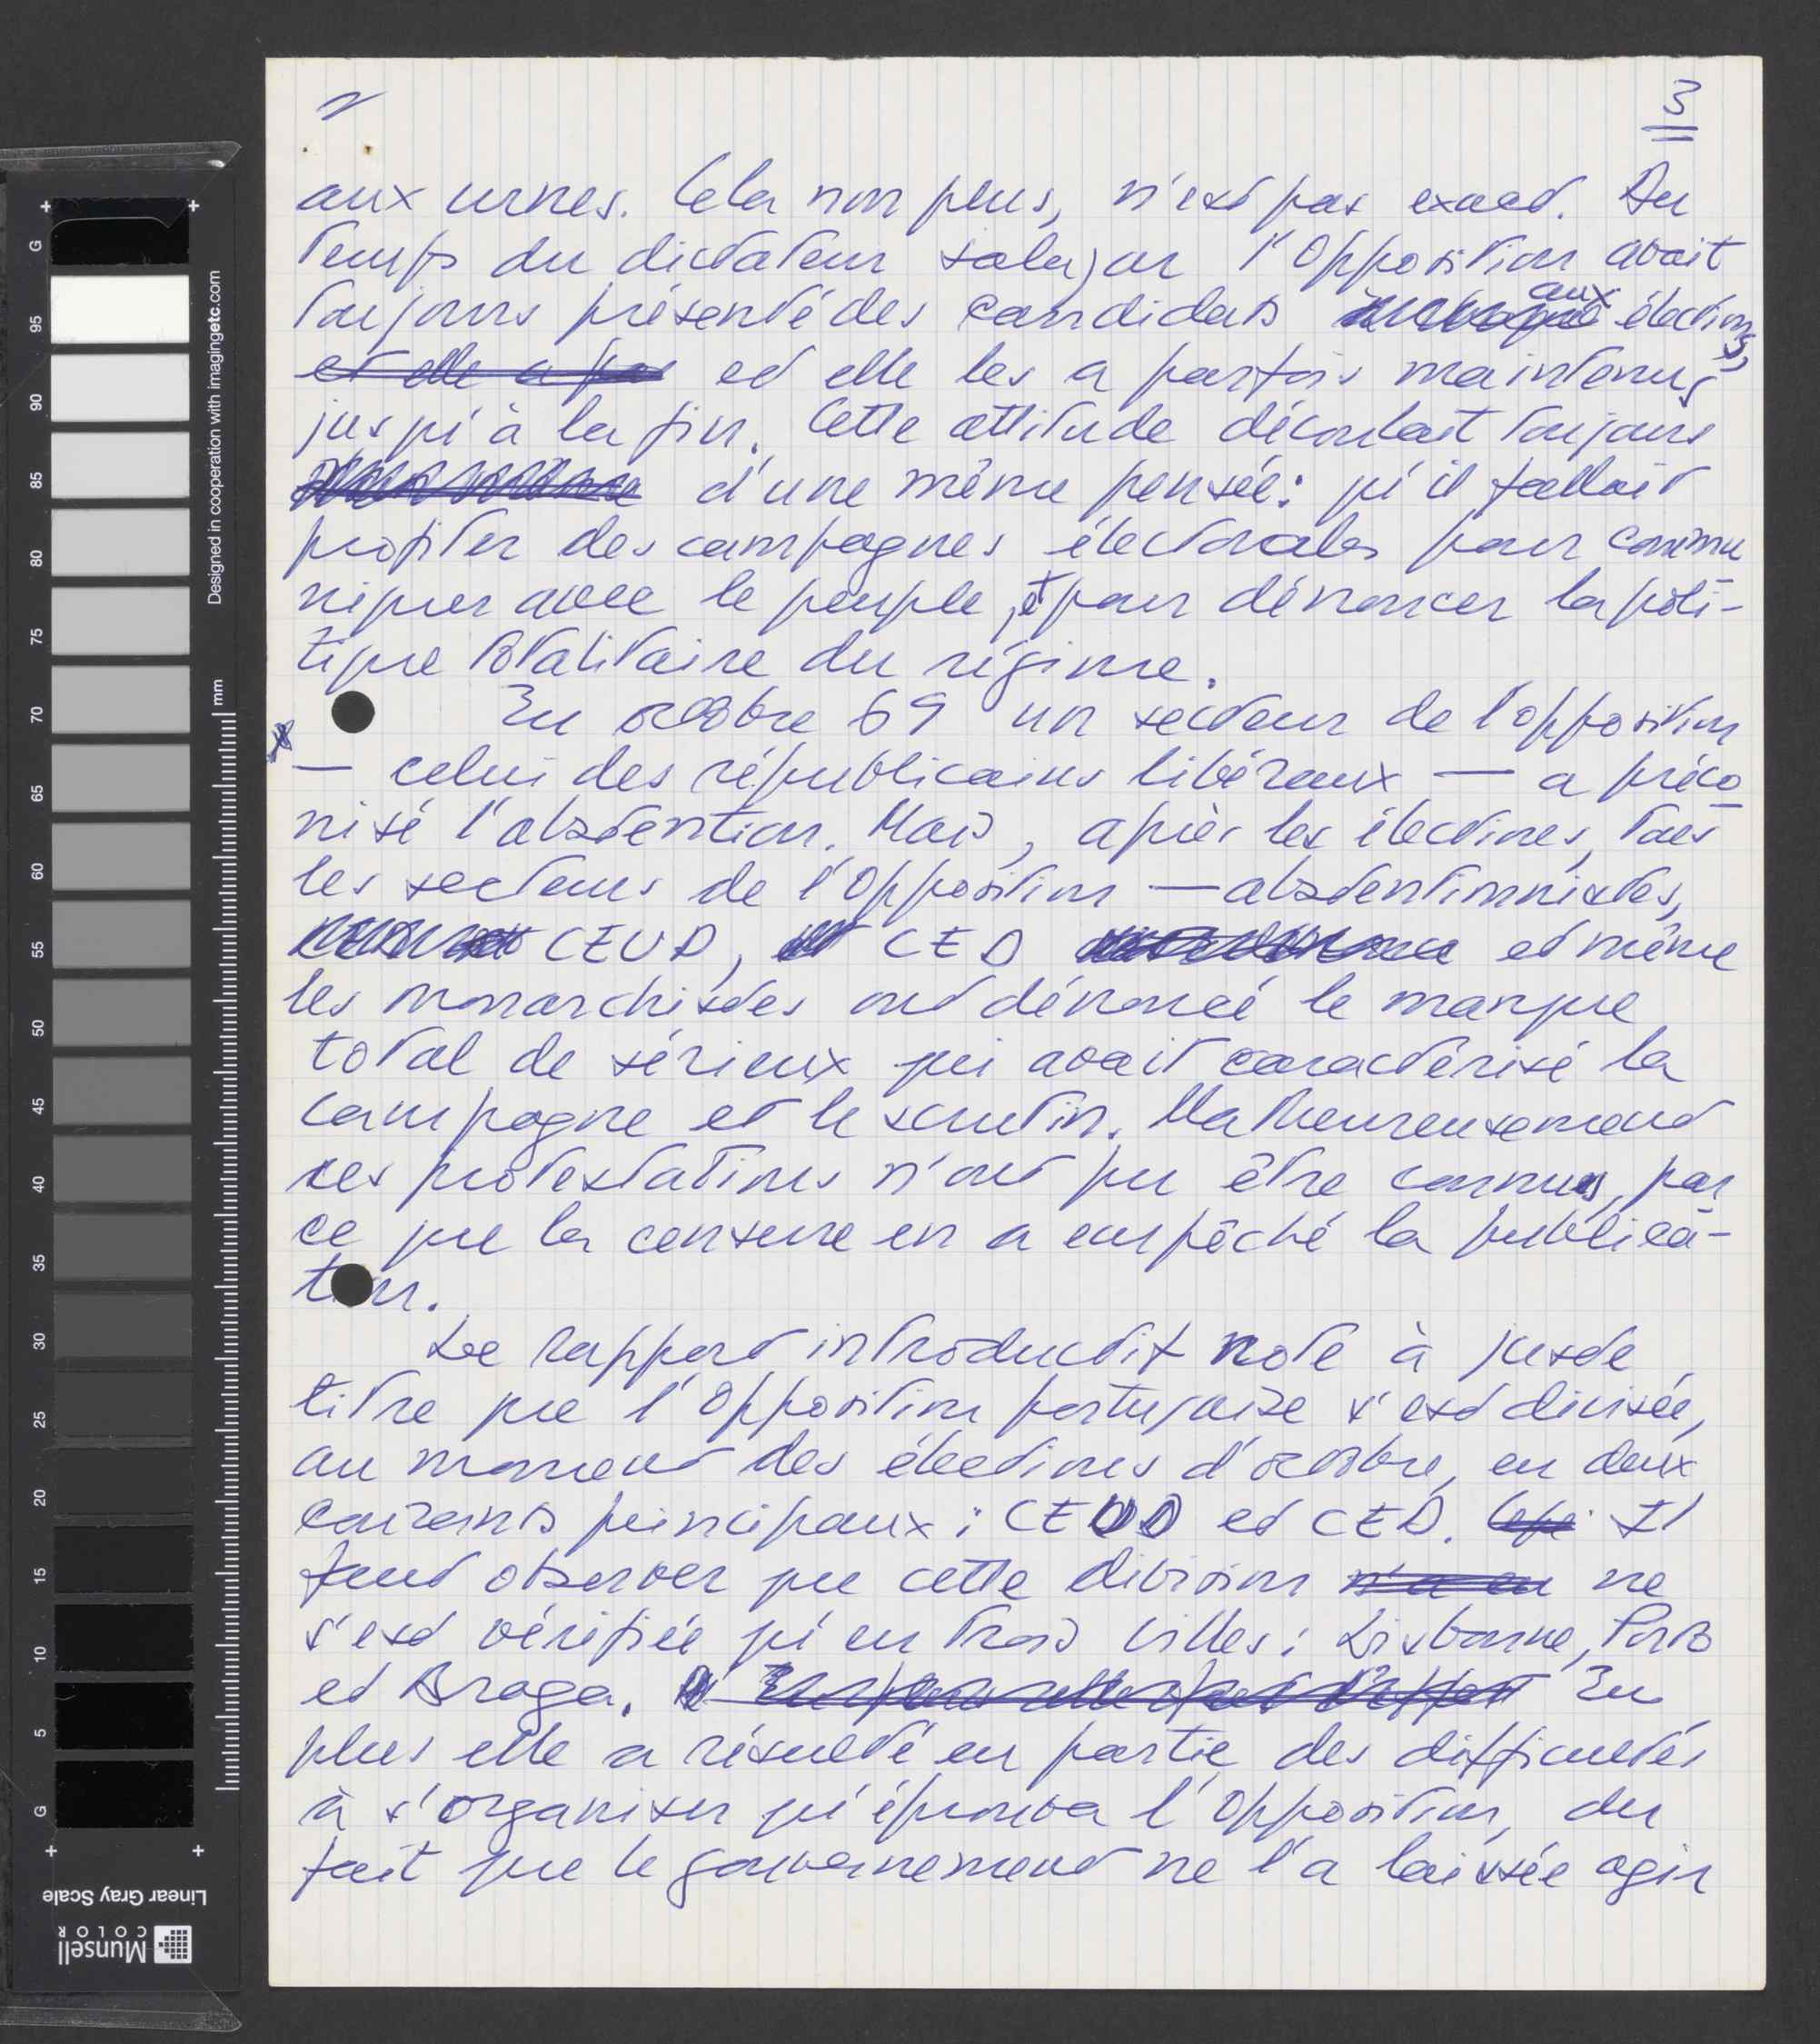 3
aux urnes. Cela non plus, n'est pas exact. Au
temps du dictateur Salazar l'Opposition avait
toujours présenté des candidats aux élections,
et elle a pas et elle les a parfois maintenus
jusqu'à la fin. Cette attitude découlait toujours
d'une même pensée: qu'il fallait
profiter des campagnes électorales pour commu
niquer avec le peuple, et pour dénoncer la poli-
tique totalitaire du régime.
En octobre 69 un secteur de l'opposition
— celui des républicains libéraux — a préco
nisé l'abstention. Mais, après les élections, tous
les secteurs de l'Opposition — abstentionnistes,
CEUD, CED et même
les monarchistes ont dénoncé le manque
total de sérieux qui avait caractérisé la
campagne et le scrutin. Malheureusement
ces protestations n'ont pu être connues, par
ce que la censure en a empêché la publica-
tion.
Le rapport introductif note à juste
titre que l'Opposition portugaise s'est divisée,
au moment des élections d'octobre, en deux
courants principaux: CEUD et CED. Il
faut observer que cette division n'a eu ne
s'est vérifiée qu'en trois villes: Lisbonne, Porto
et Braga. En
plus elle a résulté en partie des difficultés
à s'organiser qu'éprouva l'Opposition, du
fait que le gouvernement ne l'a laissée agir
Designed in cooperation with imagingetc.com
mm
G
95
90
85
80
75
70
65
60
55
50
45
40
35
30
25
20
15
10
5
G
Linear Gray Scale
Munsell
COLOR